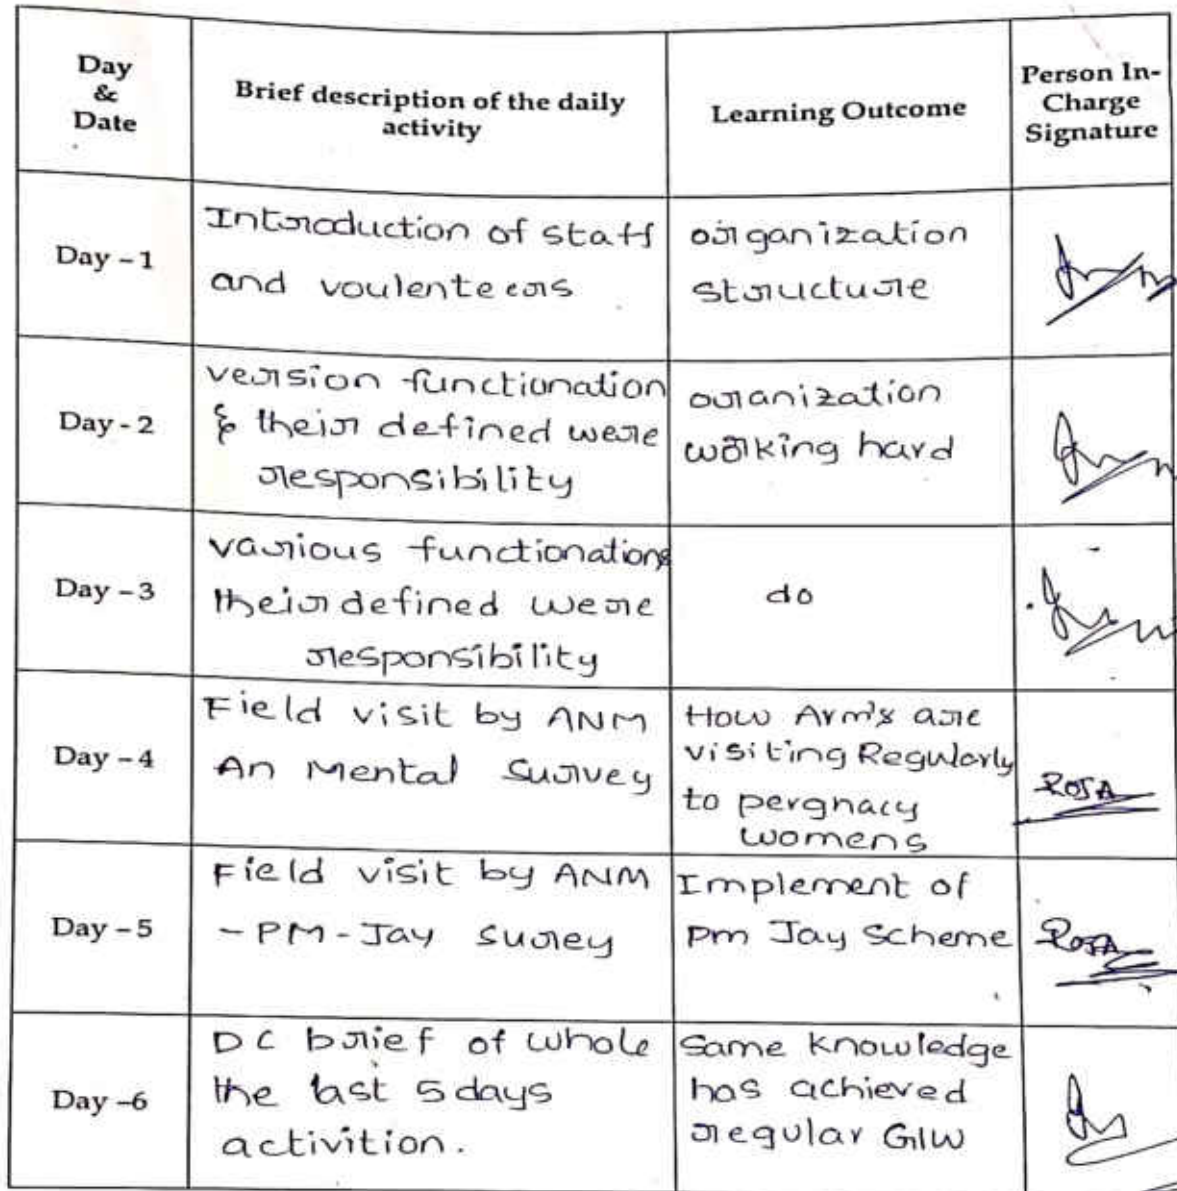 Day
&
Date
Brief description of the daily
activity
Learning Outcome
Person In-
Charge
Signature
Day – 1
Introduction of staff
and voulenteers
organization
structure
Day - 2
version functionation
& their defined were
responsibility
oranization
working hard
Day – 3
various functionations
their defined were
responsibility
do
Day – 4
Field visit by ANM
An Mental Survey
How Arm's are
visiting Regularly
to pergnacy
womens
ROJA
Day – 5
Field visit by ANM
- PM - Jay surey
Implement of
pm Jay Scheme
ROJA
Day –6
DC brief of whole
the last 5 days
activition.
Same knowledge
has achieved
regular GIW